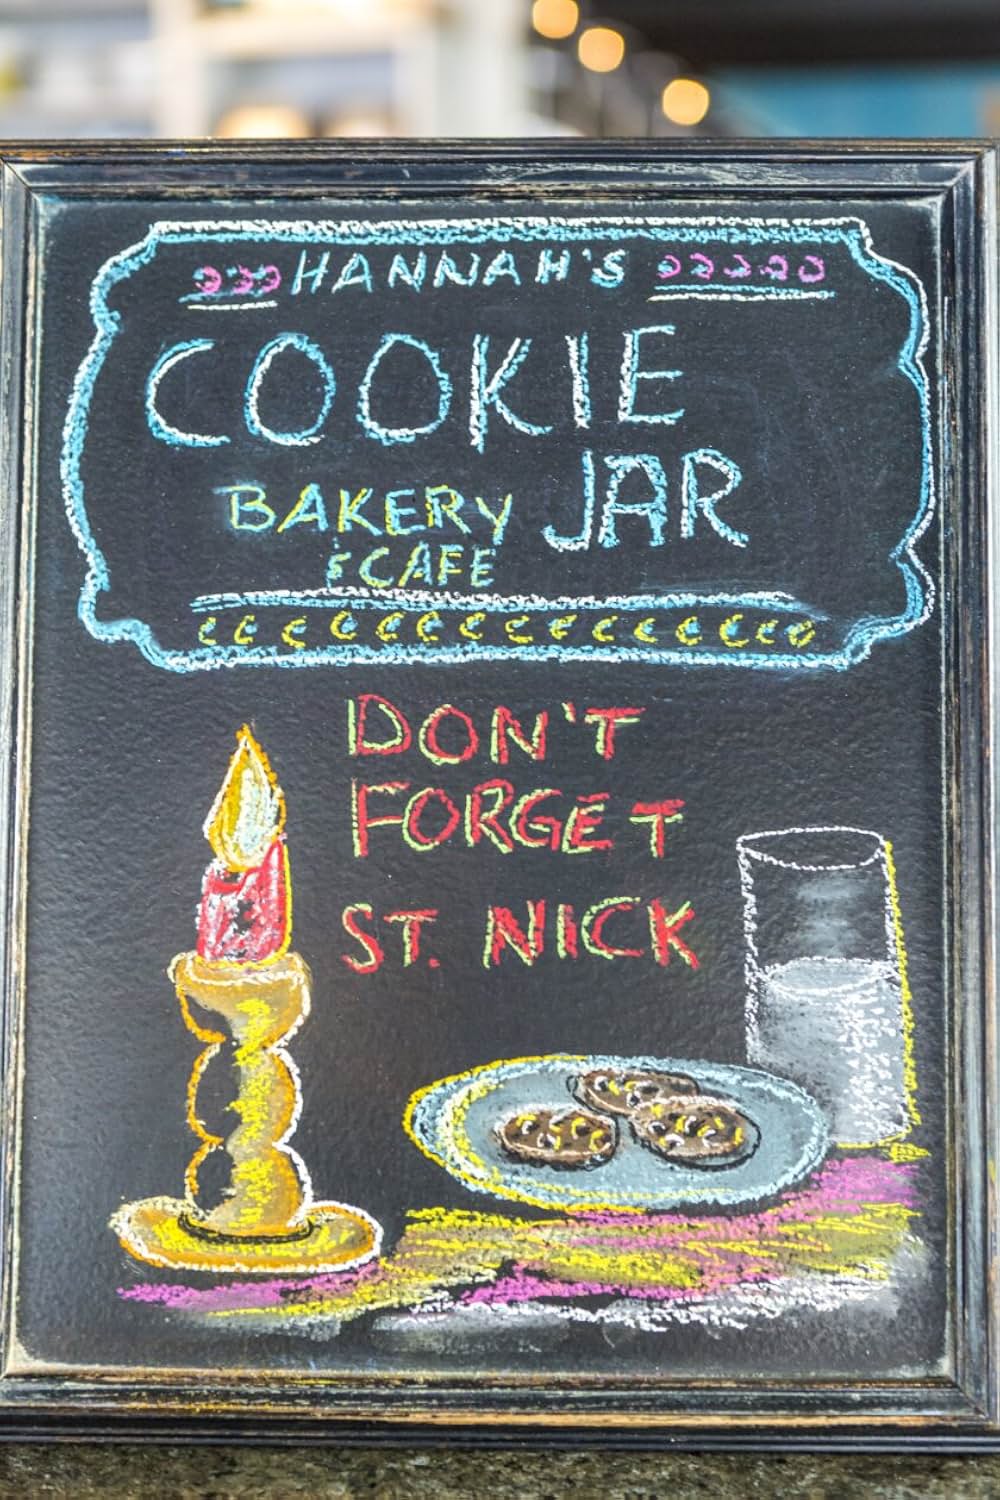 HANNAH'S
COOKIE
JAR
BAKERY
& CAFE
DON'T
FORGET
ST. NICK